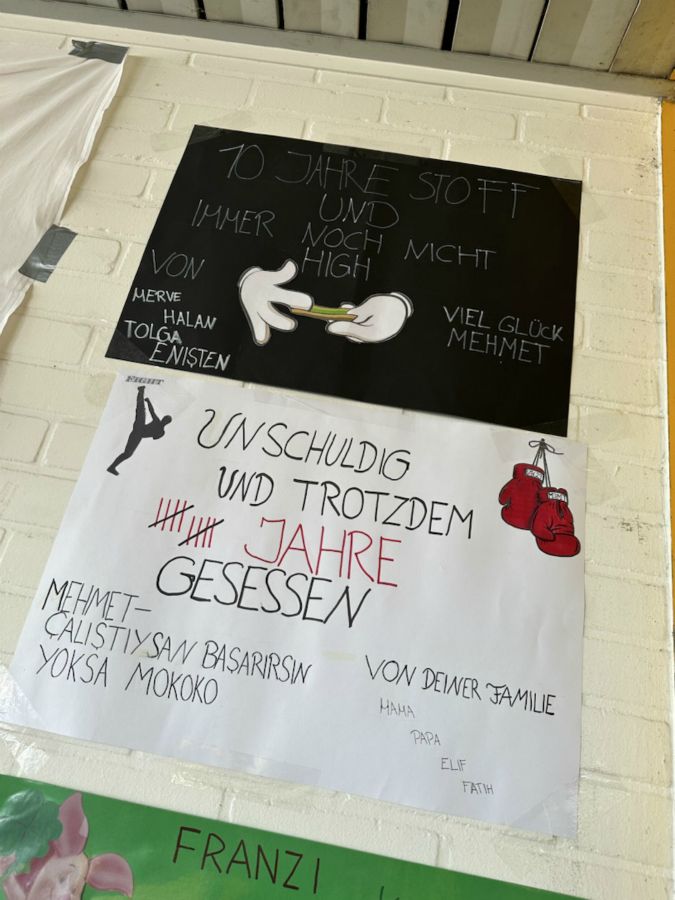 10 JAHRE STOFF
UND
IMMER NOCH NICHT
HIGH
VON
MERVE
HALAN
TOLGA
ENIŞTEN
VIEL GLÜCK
MEHMET
UNSCHULDIG
UND TROTZDEM
JAHRE
GESESSEN
MEHMET-
ÇALIŞTIYSAN BAŞARIRSIN
YOKSA MOKOKO
VON DEINER FAMILIE
MAMA
PAPA
ELIF
FATIH
FRANZI